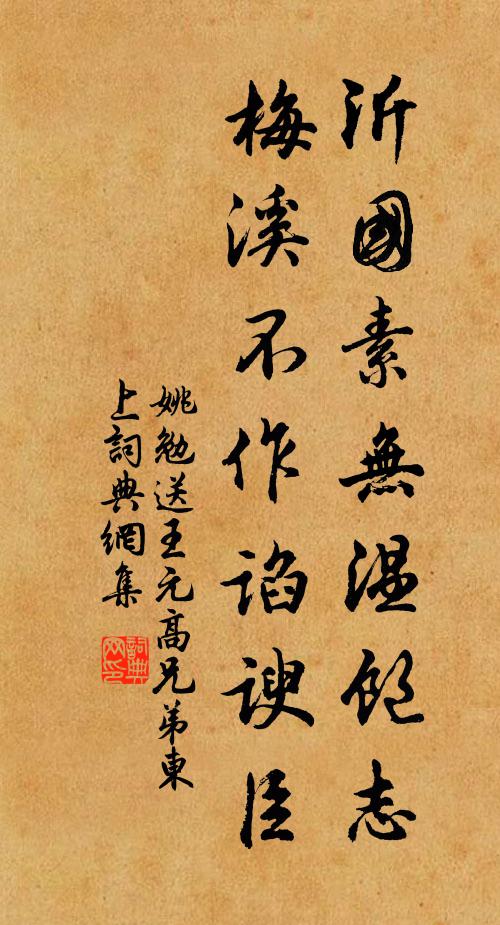 沂國素無温飽志
梅溪不作諂諛臣
姚勉送王元高兄弟東
上詞典網集
詞典
网印